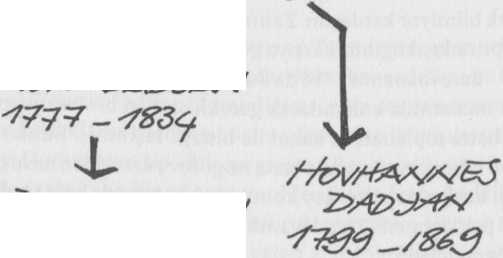 1777 – 1834
HOVHANNES
DADYAN
1799 – 1869